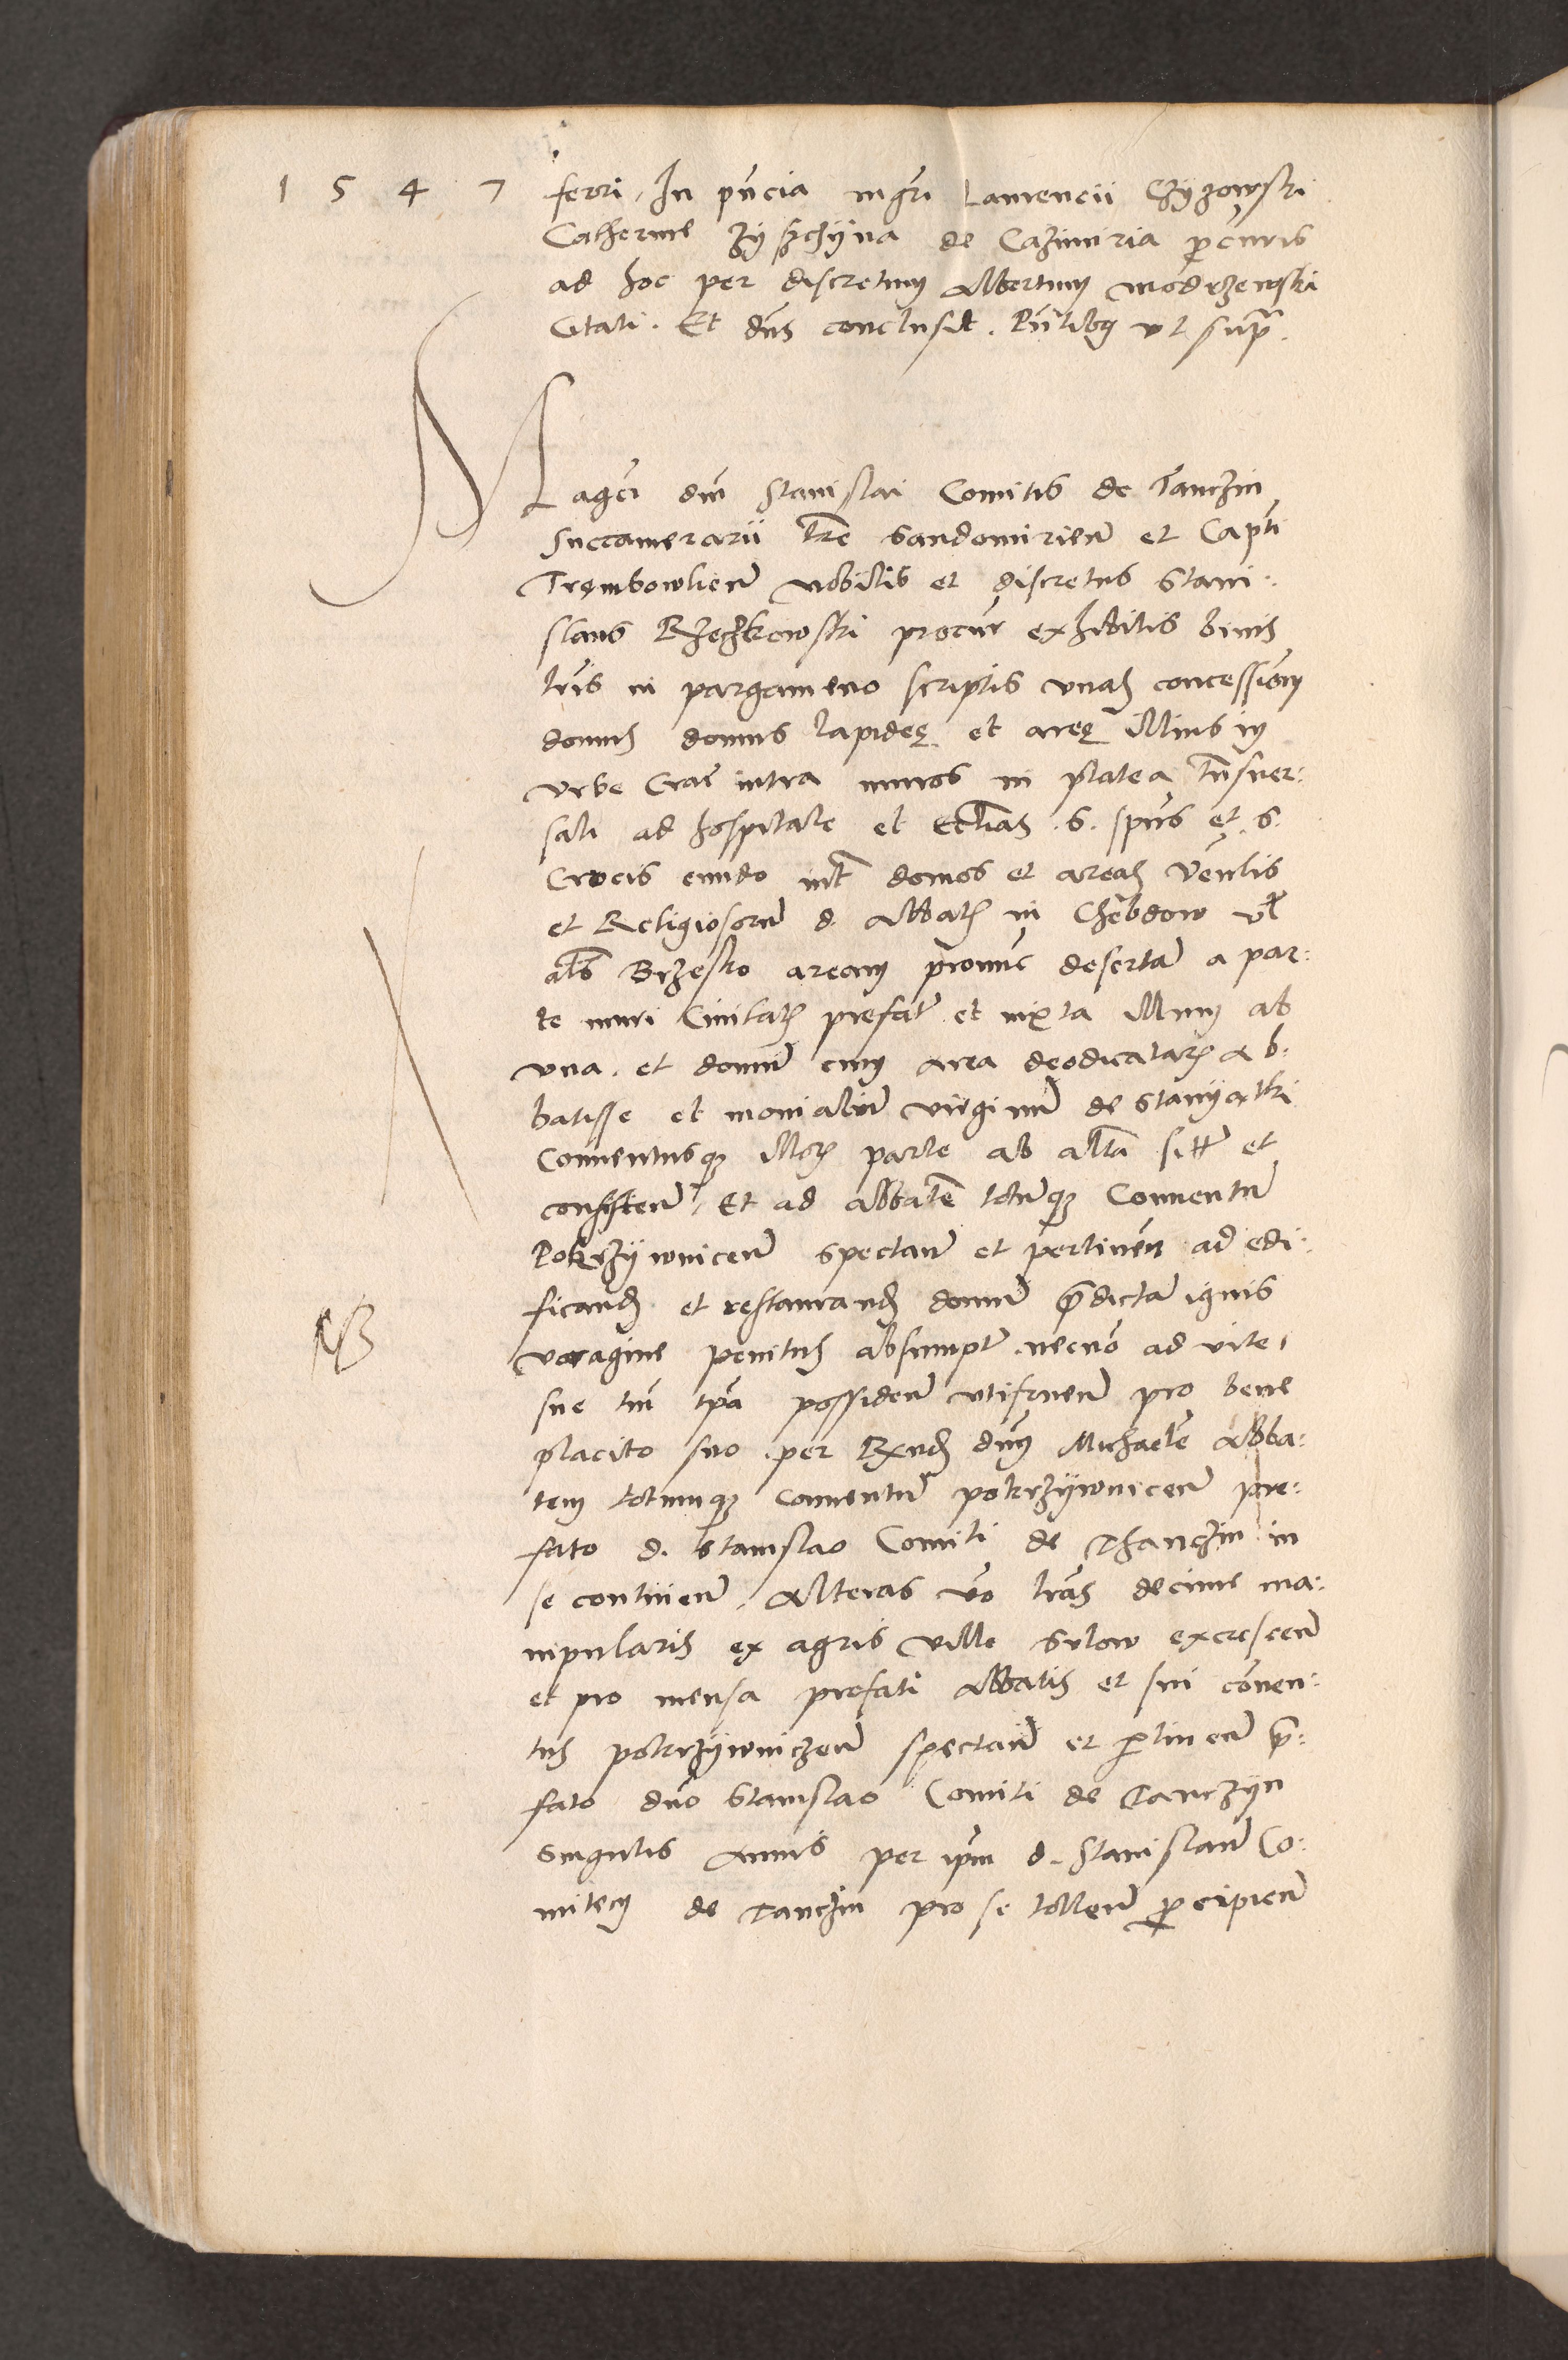 1 5 4 7 ferri. In pncia mgri Laurencii Czyzowski
Catherine Zy de Cazimiria pcuris
ad hoc per discretum Albertum Modrzewski
Ctati. Et dns conclusit. Pntibq vt supra.
Magci dni Stanislai Comitis de Tanczin
Succamerarii tre Sandomirien et Capti
Trembowlien nobilis et discretus Stani:
slaus Rzeczkowski procur exhibitis binis
lris in pargameno scriptis unas concessionem
domus domus lapideę et areę illius in
urbe Crac intra muros in platea tnsuer:
sali ad hospitale et eccliam S. Spus et S.
Crucis eundo int domos et areas Venlis
et Religiosorum d. Abbatis in Chebdow vl
als Brzesko aream pronunc desertam a par:
te muri Civitatis prefate et iuxta illum ab
una. et domum cum area deodicatarum Ab:
batisse et monialium virginum de Stanyatki
Conventusque illorum parte ab alta sitt et
consisten. Et ad abbatem totumque Conventum
Pokrzywnicen spectan et pertinen ad edi:
ficand et restaurand domum predictam ignis
NB voragine penitus absumptam necno ad vite
sue tm tpa possiden utifruen pro bene
placito suo per Rxnd dnum Michaelem Abba:
tem totumque Conventum pokrzywnicen pre:
fato d. Stanislao Comiti de Thanczin in
se continen. Alteras vo lras decime ma:
nipularis ex agris ville Sulow excrescen
et pro mensa prefati Abbatis et sui conven:
tus pokrzywniczen spectan et ptinen pre:
fato dno Stanislao Comiti de Tanczyn
singulis annis per ipm d. Stanislaum Co:
mitem de Tanczin pro se tollen pcipien